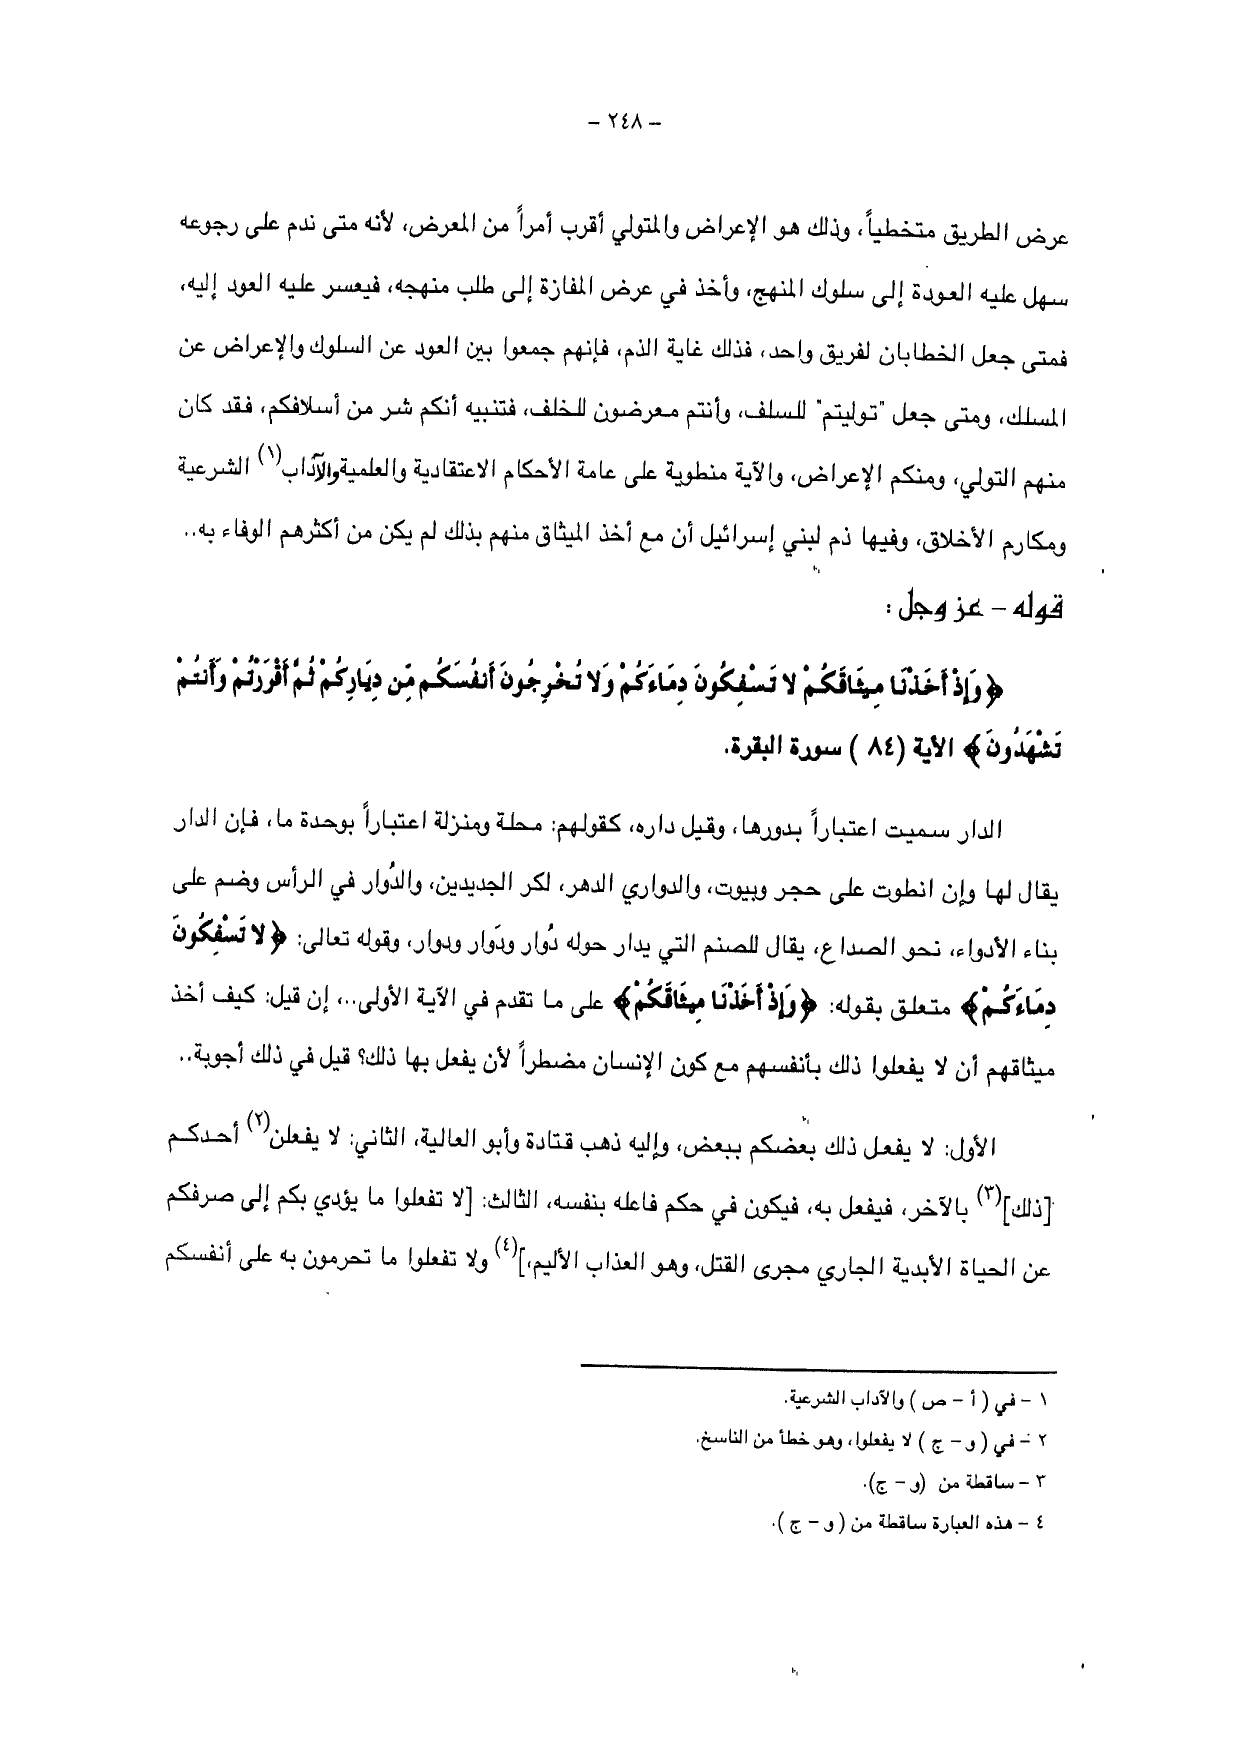 - ٢٤٨ -
عرض الطريق متخطياً، وذلك هو الإعراض والمتولي أقرب أمراً من المعرض، لأنه متى ندم على رجوعه
سهل عليه العودة إلى سلوك المنهج، وأخذ في عرض المفازة إلى طلب منهجه، فيعسر عليه العود إليه،
فمتى جعل الخطابان لفريق واحد، فذلك غاية الذم، فإنهم جمعوا بين العود عن السلوك والإعراض عن
المسلك، ومتى جعل "توليتم" للسلف، وأنتم معرضون للخلف، فتنبيه أنكم شر من أسلافكم، فقد كان
منهم التولي، ومنكم الإعراض، والآية منطوية على عامة الأحكام الاعتقادية والعلمية والآداب(١) الشرعية
ومكارم الأخلاق، وفيها ذم لبني إسرائيل أن مع أخذ الميثاق منهم بذلك لم يكن من أكثرهم الوفاء به..
قوله - عز وجل :
﴿وَإِذْ أَخَذْنَا مِيثَاقَكُمْ لا تَسْفِكُونَ دِمَاءَكُمْ وَلا تُخْرِجُونَ أَنفُسَكُم مِّن دِيَارِكُمْ ثُمَّ أَقْرَرْتُمْ وَأَنتُمْ
تَشْهَدُونَ﴾ الآية (٨٤ ) سورة البقرة.
الدار سميت اعتباراً بدورها، وقيل داره، كقولهم: محلة ومنزلة اعتباراً بوحدة ما، فإن الدار
يقال لها وإن انطوت على حجر وبيوت، والدواري الدهر، لكر الجديدين، والدُوار في الرأس وضم على
بناء الأدواء، نحو الصداع، يقال للصنم التي يدار حوله دُوار ودَوار ودوار، وقوله تعالى: ﴿لا تَسْفِكُونَ
دِمَاءَكُمْ﴾ متعلق بقوله: ﴿وَإِذْ أَخَذْنَا مِيثَاقَكُمْ﴾ على ما تقدم في الآية الأولى..، إن قيل: كيف أخذ
ميثاقهم أن لا يفعلوا ذلك بأنفسهم مع كون الإنسان مضطراً لأن يفعل بها ذلك؟ قيل في ذلك أجوبة..
الأول: لا يفعل ذلك بعضكم ببعض، وإليه ذهب قتادة وأبو العالية، الثاني: لا يفعلن(٢) أحدكم
[ذلك](٣) بالآخر، فيفعل به، فيكون في حكم فاعله بنفسه، الثالث: [لا تفعلوا ما يؤدي بكم إلى صرفكم
عن الحياة الأبدية الجاري مجرى القتل، وهو العذاب الأليم،](٤) ولا تفعلوا ما تحرمون به على أنفسكم
١ - في ( أ - ص ) والآداب الشرعية.
٢ - في ( و - ج ) لا يفعلوا، وهو خطأ من الناسخ.
٣ - ساقطة من (و - ج).
٤ - هذه العبارة ساقطة من ( و - ج ).